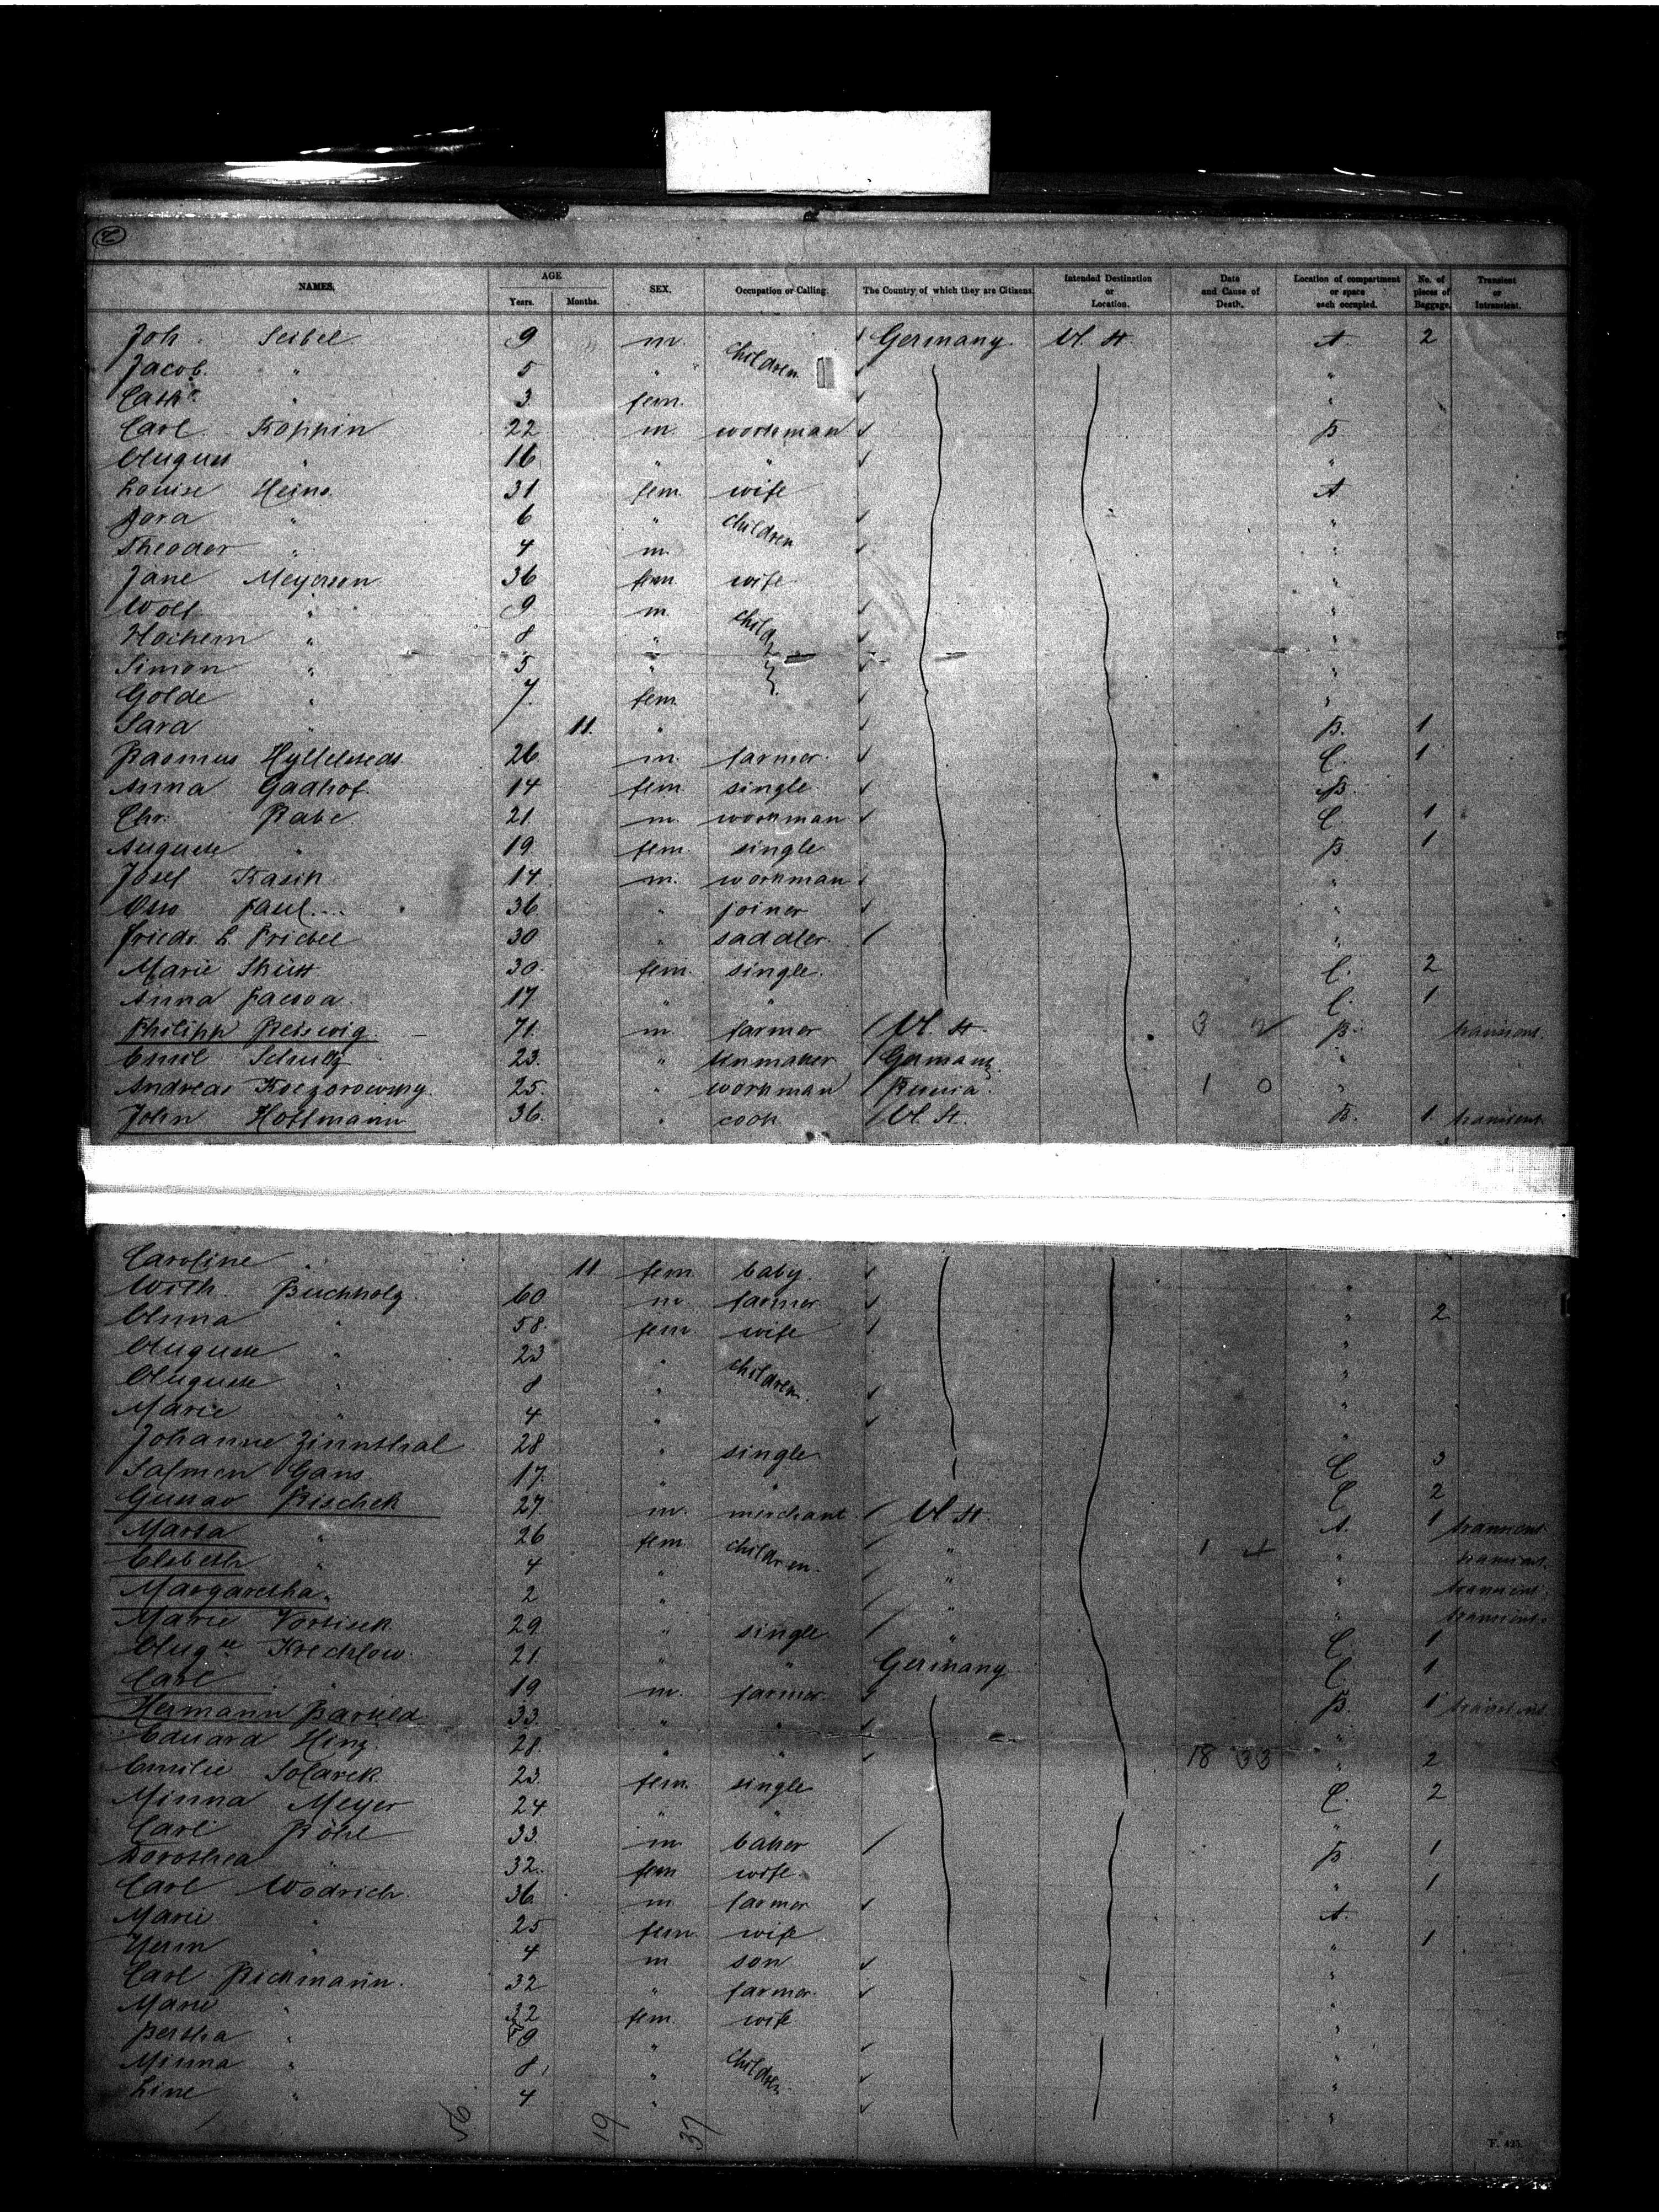 NAMES. AGE Years. Months. SEX. Occupation or Calling. The Country of which they are Citizens. Intended Destination or Location. Date and Cause of Death. Location of compartment or space each occupied. No. of pieces of Baggage. Transient or Intransient.
Joh. Seibel 9 m. children Germany U. St. A. 2
Jacob " 5 " "
Cath. " 3 fem. "
Carl Koppin 22 m. workman B
August " 16 " " "
Louise Heins 31 fem. wife A
Dora " 6 " children "
Theodor " 4 m. "
Jane Meyerson 36 fem. wife "
Wolf " 9 m. child "
Nochem " 8 " "
Simon " 5 " "
Golde " 7 fem. "
Sara " 11. " B. 1
Rasmus 26 m. farmer C. 1
Anna Gadhof 14 fem. single B.
Chr. Rabe 21 m. workman C 1
Auguste " 19 fem. single B 1
Josef Kasik 14 m. workman "
Otto Paul 36 " joiner
Friedr. L. Priebel 30 " saddler "
Marie 30 fem. single. C. 2
Anna 17 " " C. 1
Philipp Reiswig 71 m. farmer U. St. 3 B. transient.
Emil Schultz 23. " Germany "
Andreas 25. " workman Russia 1 0 "
John Hoffmann 36. " cook U. St. B. 1. transient
Caroline " 11 fem. baby
Wilh. Buchholz 60 m. farmer " 2
Anna " 58. fem wife "
Auguste " 23 " children "
Auguste " 8 " "
Marie " 4 " "
Johanne Zinnthal 28 " single C 3
Salmen Gans 17 " " C 2
Gustav Rischek 27 m. merchant U. St. A. 1 transient
Martha " 26 fem. children " 1 " transient.
Elsbeth " 4 " " " transient.
Margaretha " 2 " " " transient.
Marie Vortisek 29 " single " C 1
Aug.te Krechlow 21 " " Germany C 1
Carl " 19 m. farmer B. 1 transient
Hermann Barteld 33 " " "
Eduard Hinz 28. " " 18 33 " 2
Emilie Solarek 23 fem. single C. 2
Minna Meyer 24 " " "
Carl Röhl 33. m. baker B 1
Dorothea " 32. fem wife. " 1
Carl Wodrich 36 m. farmer A.
Marie " 25 fem. wife " 1
Herm " 4 m. son "
Carl Rickmann 32 " farmer "
Marie " 32 fem. wife "
Bertha " 9 " "
Minna " 8 " children "
Line " 4 " "
56 19 37
F. 425.